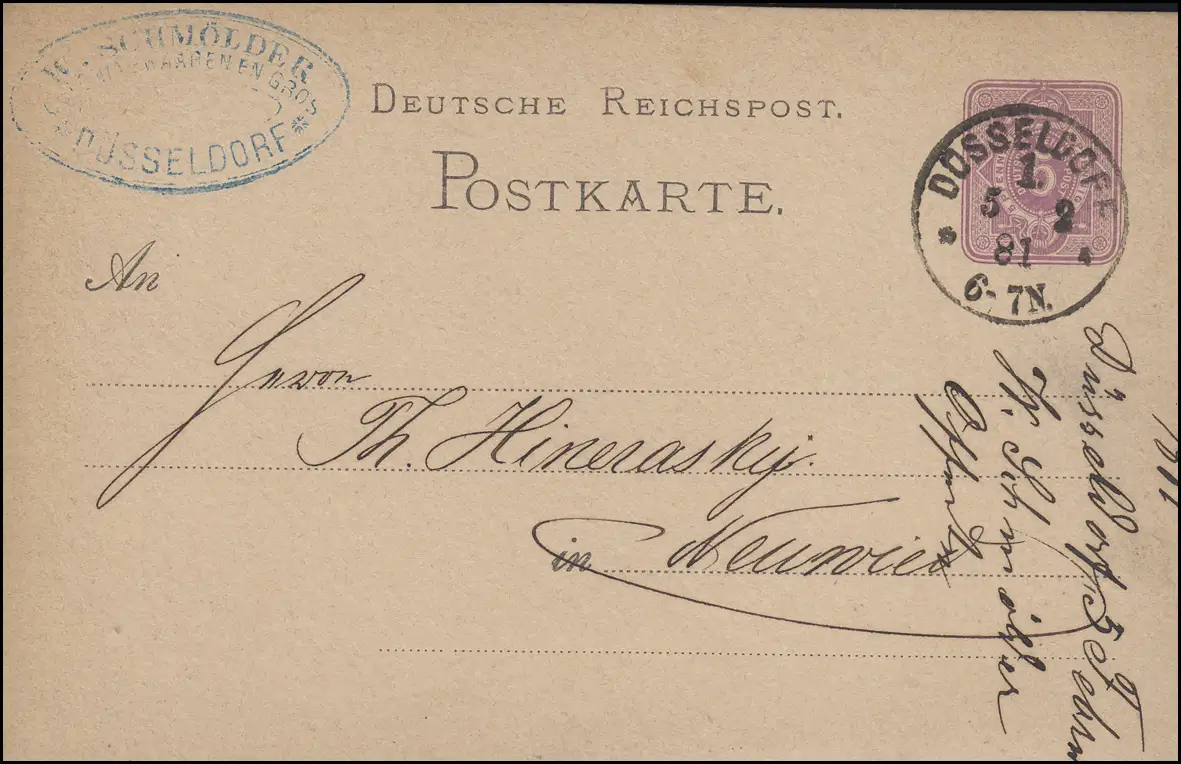 W. SCHMÖLDER
EN GROS
* DÜSSELDORF *
DEUTSCHE REICHSPOST.
POSTKARTE.
DÜSSELDORF
1.
5 2
81
6-7N.
An
Herrn
Th. Hinerasky.
in Neuwied
Düsseldorf, 5 Febr
W. Schmölder